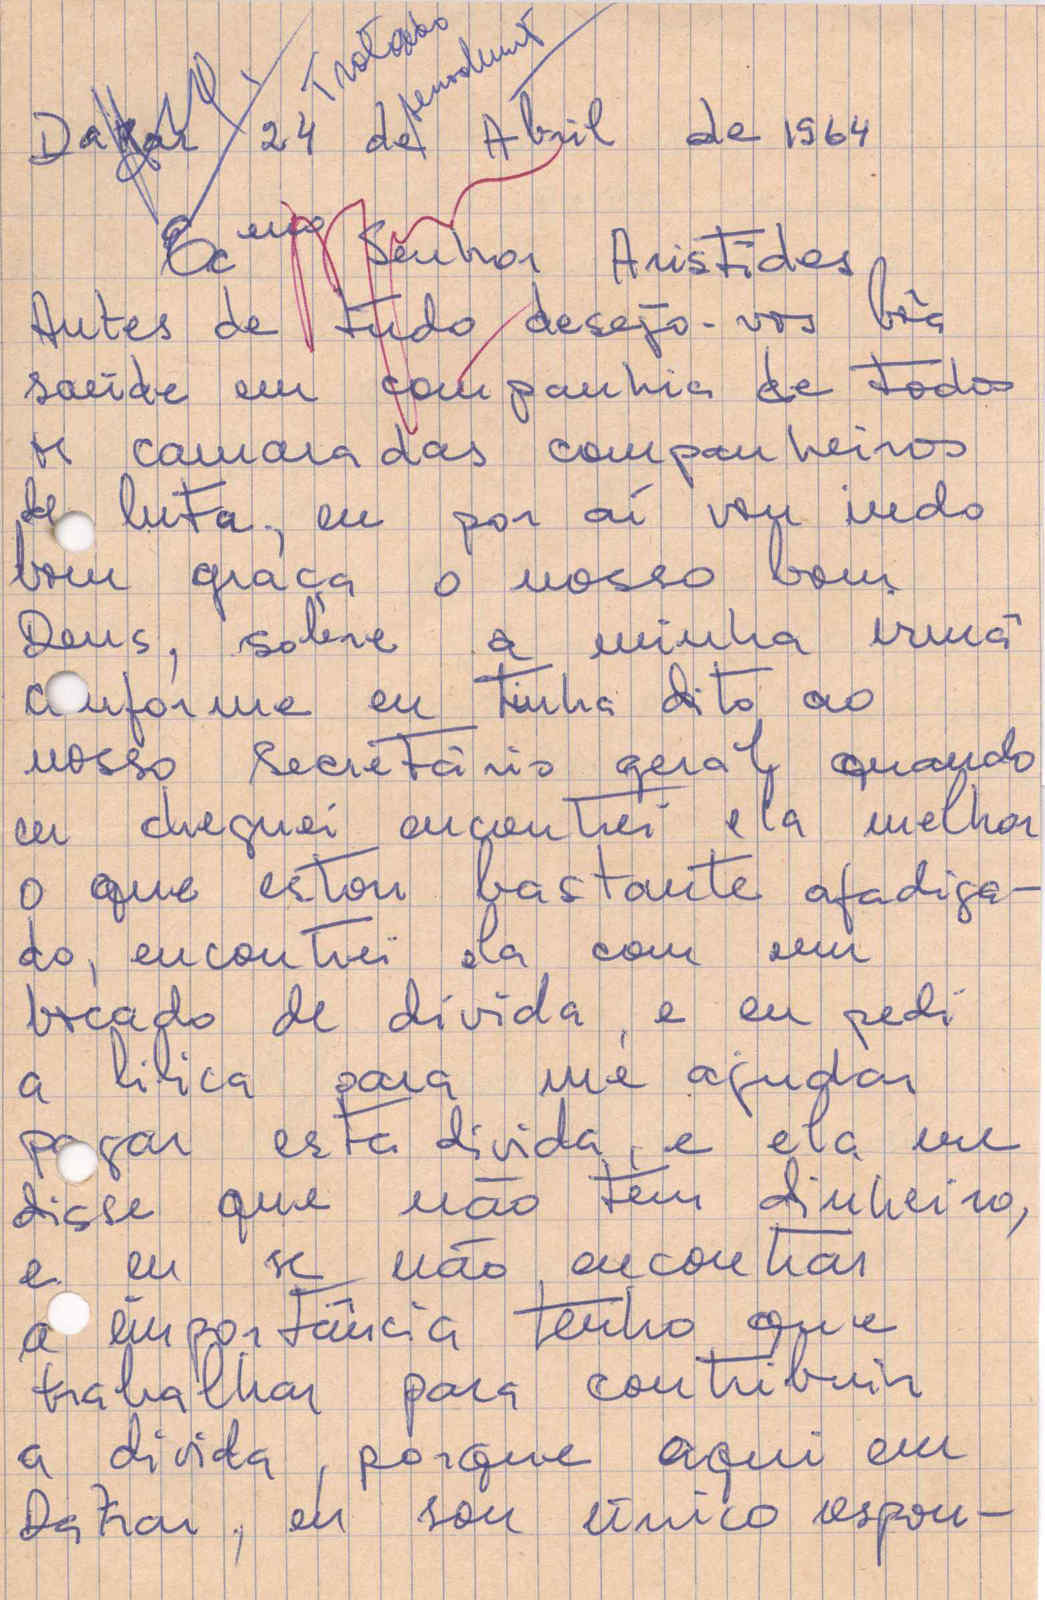 Tratado
Dakar 24 de Abril de 1964
Excmo Senhor Aristides
Antes de tudo desejo-vos bôa
saúde em companhia de todos
os camaradas companheiros
de luta, eu por aí vou indo
bom graça o nosso bom
Deus, sobre a minha irmã
conforme eu tinha dito ao
nosso Secretário geral, quando
eu cheguei encontrei ela melhor
o que estou bastante afadiga-
do, encontrei ela com um
bocado de divida, e eu pedi
a Lilica para me ajudar
pagar esta divida, e ela me
disse que não tem dinheiro,
e eu se não encontrar
a importância tenho que
trabalhar para contribuir
a divida, porque aqui em
Dakar, eu sou único respon-